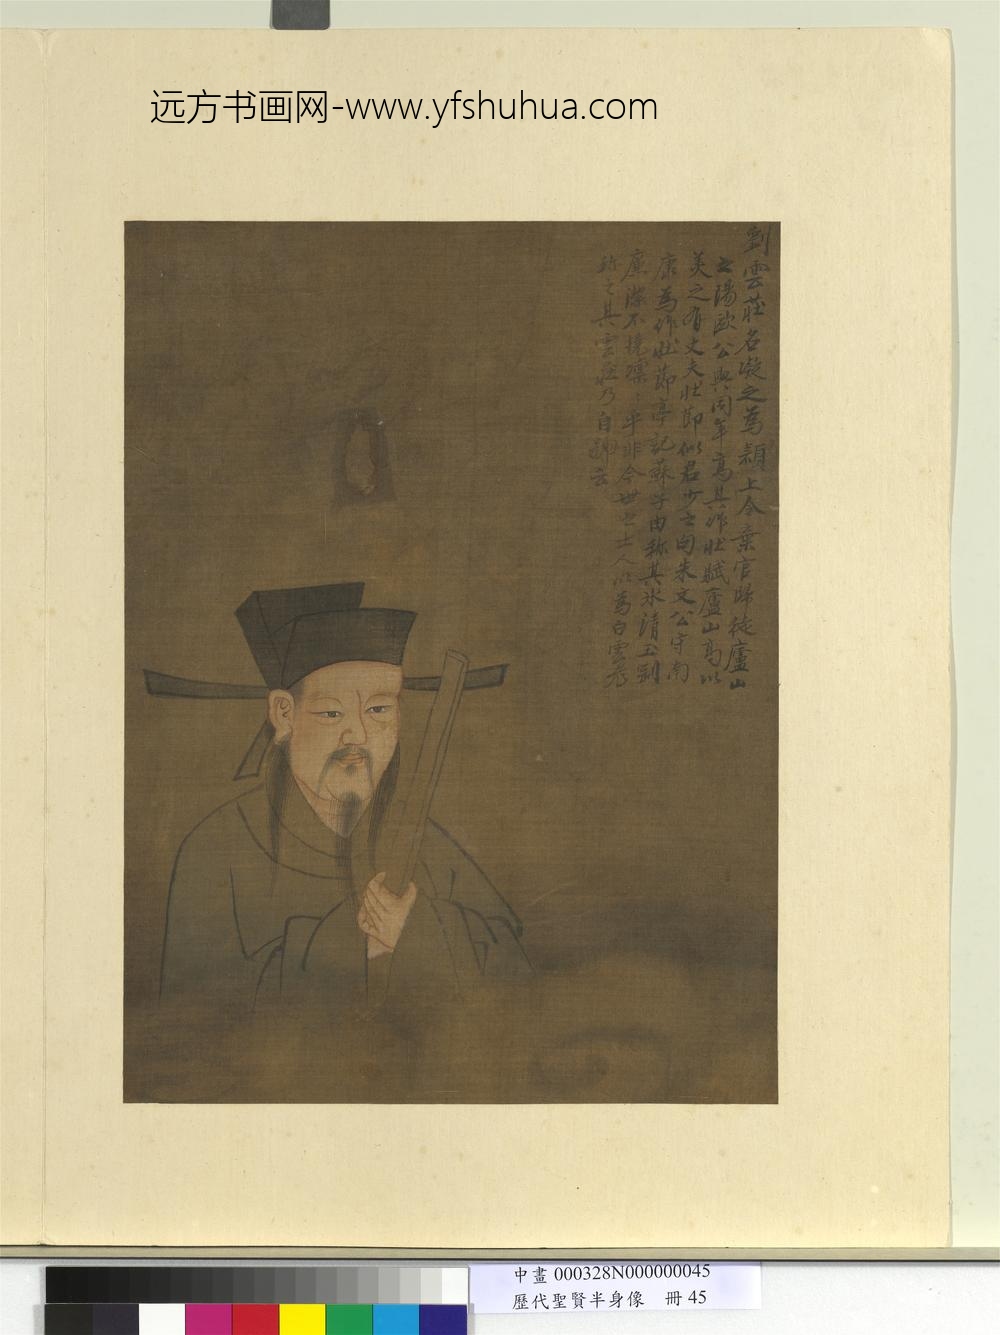 远方书画网-www.yfshuhua.com
劉雲莊名凝之為潁上令棄官歸徙廬山
之陽歐公與同年高其作壯賦廬山高以
美之有丈夫壯節似君少之句朱文公守南
康為作壯節亭記蘇子由称其氷清玉剛
廉潔不撓凜〻乎非今世之士人以為白雲老
称之其雲莊乃自號云
中畫 000328N000000045
歷代聖賢半身像 冊 45